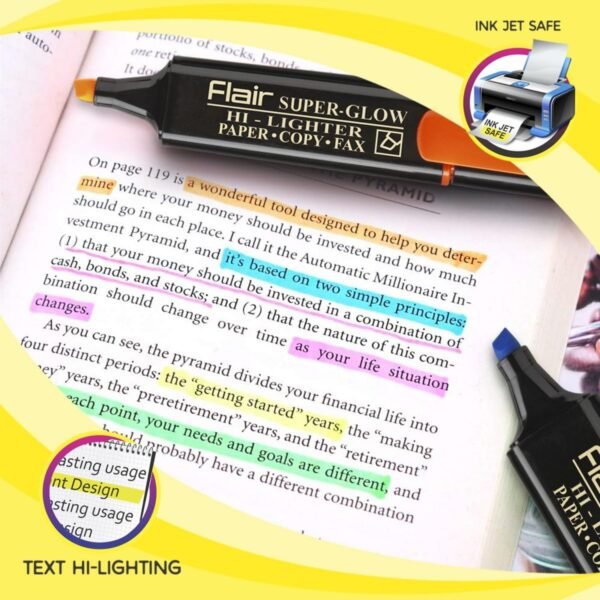 INK JET SAFE
auto-
portfolio of stocks, bonds
one reti
It do
Flair SUPER-GLOW
HI-LIGHTER
PAPER•COPY•FAX
INK JET
SAFE
PYRAMID
On page 119 is a wonderful tool designed to help you deter-
mine where your money should be invested and how much
should go in each place. I call it the Automatic Millionaire In-
vestment Pyramid, and it's based on two simple principles:
(1) that your money should be invested in a combination of
cash, bonds, and stocks; and (2) that the nature of this com-
bination should change over time as your life situation
changes.
As you can see, the pyramid divides your financial life into
four distinct periods: the "getting started" years, the "making
ney" years, the "preretirement" years, and the "retirement"
each point, your needs and goals are different, and
should probably have a different combination
Flair
HI-L
PAPER•CO
asting usage
nt Design
sting usage
sign
TEXT HI-LIGHTING